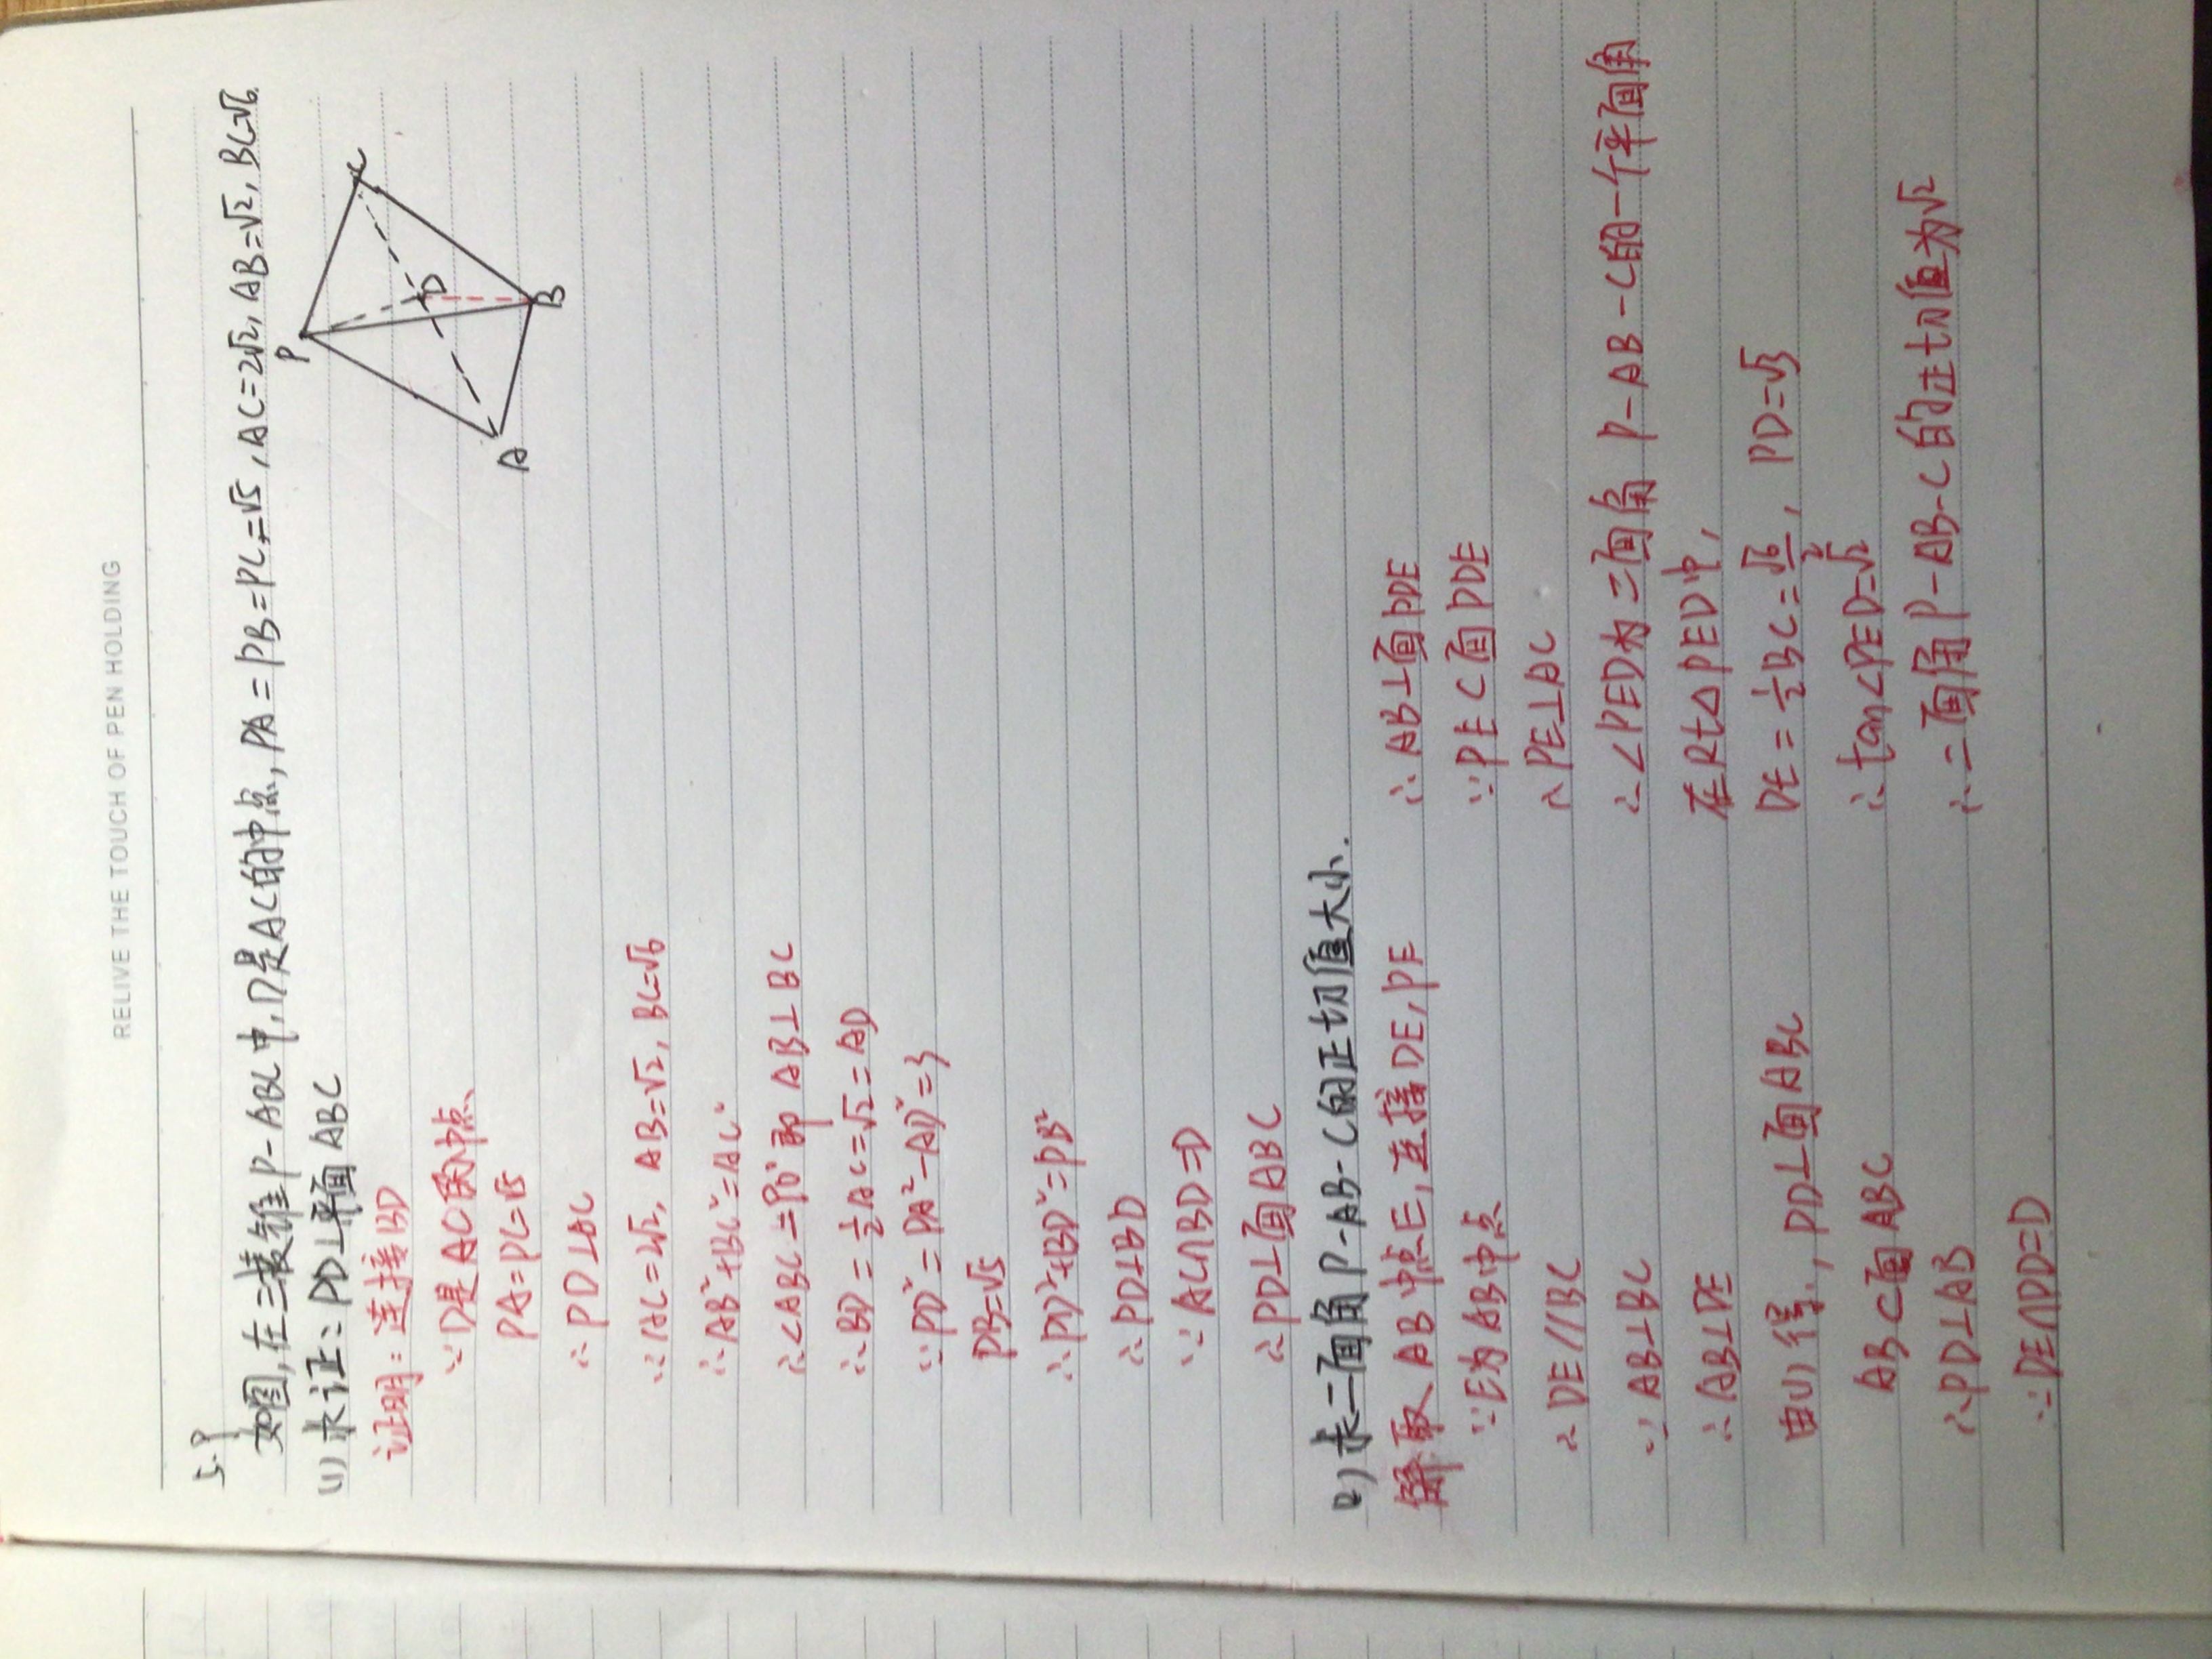 RELIVE THE TOUCH OF PEN HOLDING
5.9
如图,在三棱锥P-ABC中,D是AC的中点,PA=PB=PC=√5,AC=2√2,AB=√2,BC=√6.
(1)求证:PD⊥平面ABC
P
C
D
A
B
证明:连接BD
∵D是AC的中点
PA=PC=√5
∴PD⊥AC
∵AC=2√2, AB=√2, BC=√6
∴AB²+BC²=AC²
∴∠ABC=90°即 AB⊥BC
∴BD=½AC=√2=AD
∵PD²=PA²-AD²=3
PB=√5
∴PD²+BD²=PB²
∴PD⊥BD
∵AC∩BD=D
∴PD⊥面ABC
(2)求二面角P-AB-C的正切值大小.
解:取AB中点E,连接DE,PE
∵E为AB中点
∴DE//BC
∵AB⊥BC
∴AB⊥DE
由(1)得,PD⊥面ABC
AB⊂面ABC
∴PD⊥AB
∵DE∩PD=D
∴AB⊥面PDE
∵PE⊂面PDE
∴PE⊥AC
∴∠PED为二面角 P-AB-C的一个平面角
在Rt△PED中,
DE=½BC=√6/2, PD=√3
∴tan∠PED=√2
∴二面角P-AB-C的正切值为√2